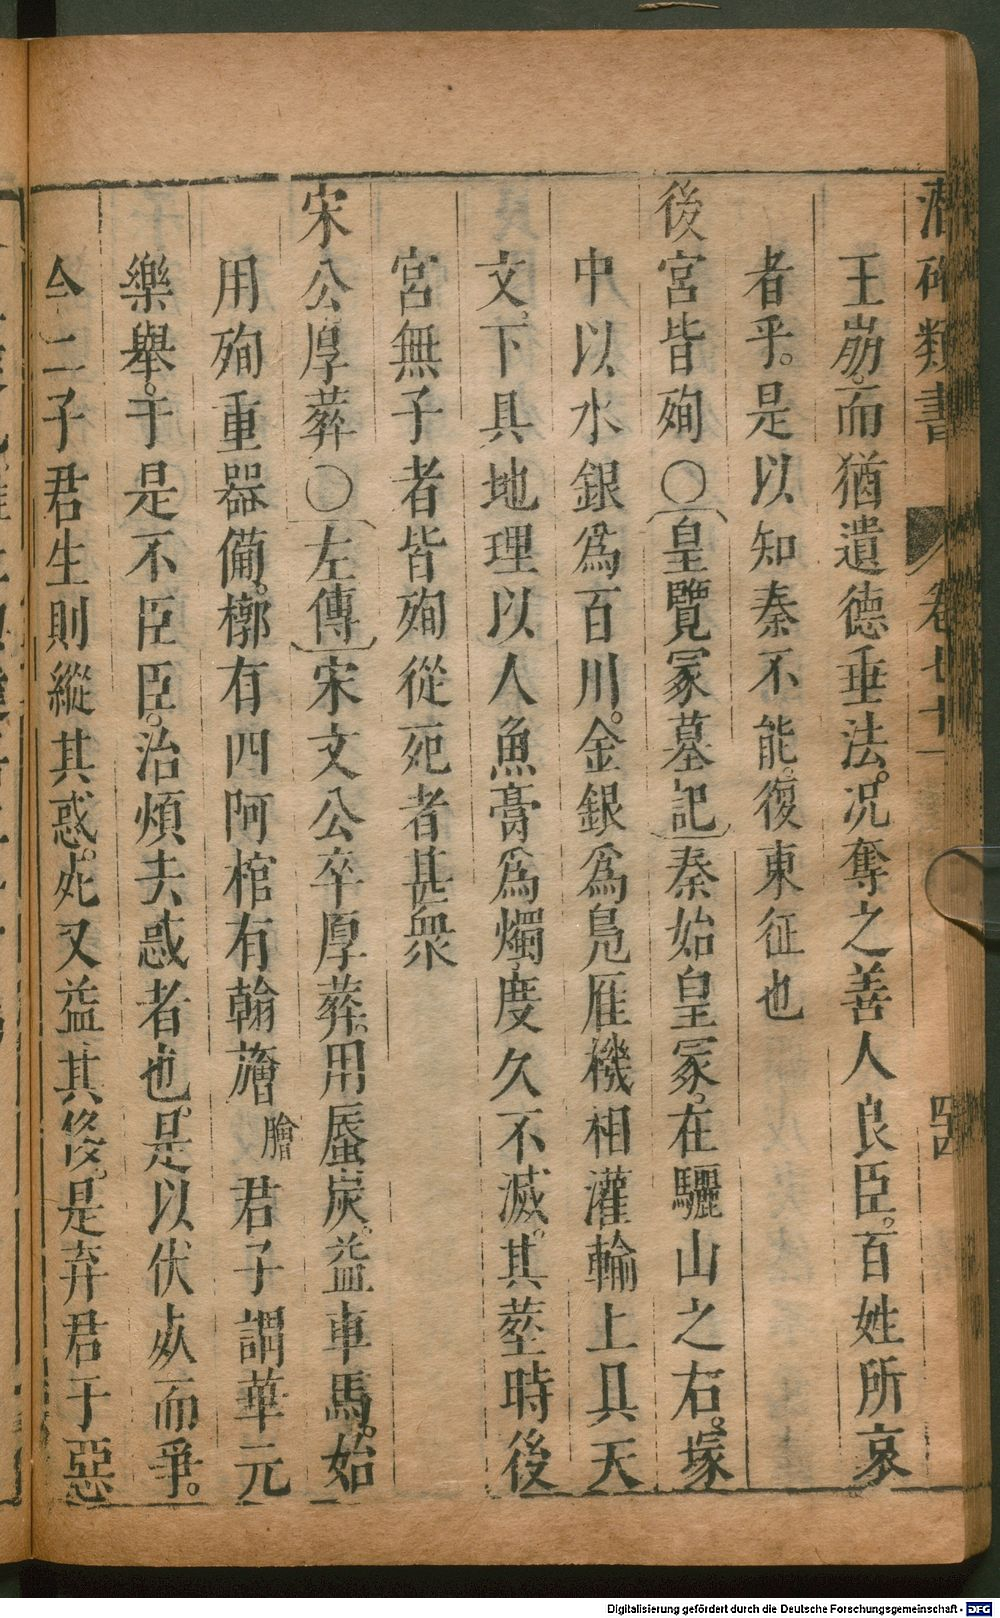 潛確類書 卷七十一 四
王崩。而猶遺德垂法。况奪之善人良臣。百姓所哀
者乎。是以知秦不能。復東征也
後宮皆殉〇皇覽冢墓記秦始皇冢。在驪山之右。塚
中以水銀為百川。金銀為鳧雁機相灌輸上具天
文。下具地理以人魚膏為燭。度久不滅。其塟時後
宮無子者皆殉從死者甚衆
宋公厚葬〇左傳宋文公卒厚葬。用蜃炭。益車馬。始
用殉重器備。槨有四阿棺有翰旝 膾 君子謂華元
樂舉。于是不臣臣。治煩去惑者也。是以伏死而爭。
今二子君生則縱其惑。死又益其侈。是弃君于惡
Digitalisierung gefördert durch die Deutsche Forschungsgemeinschaft - DFG